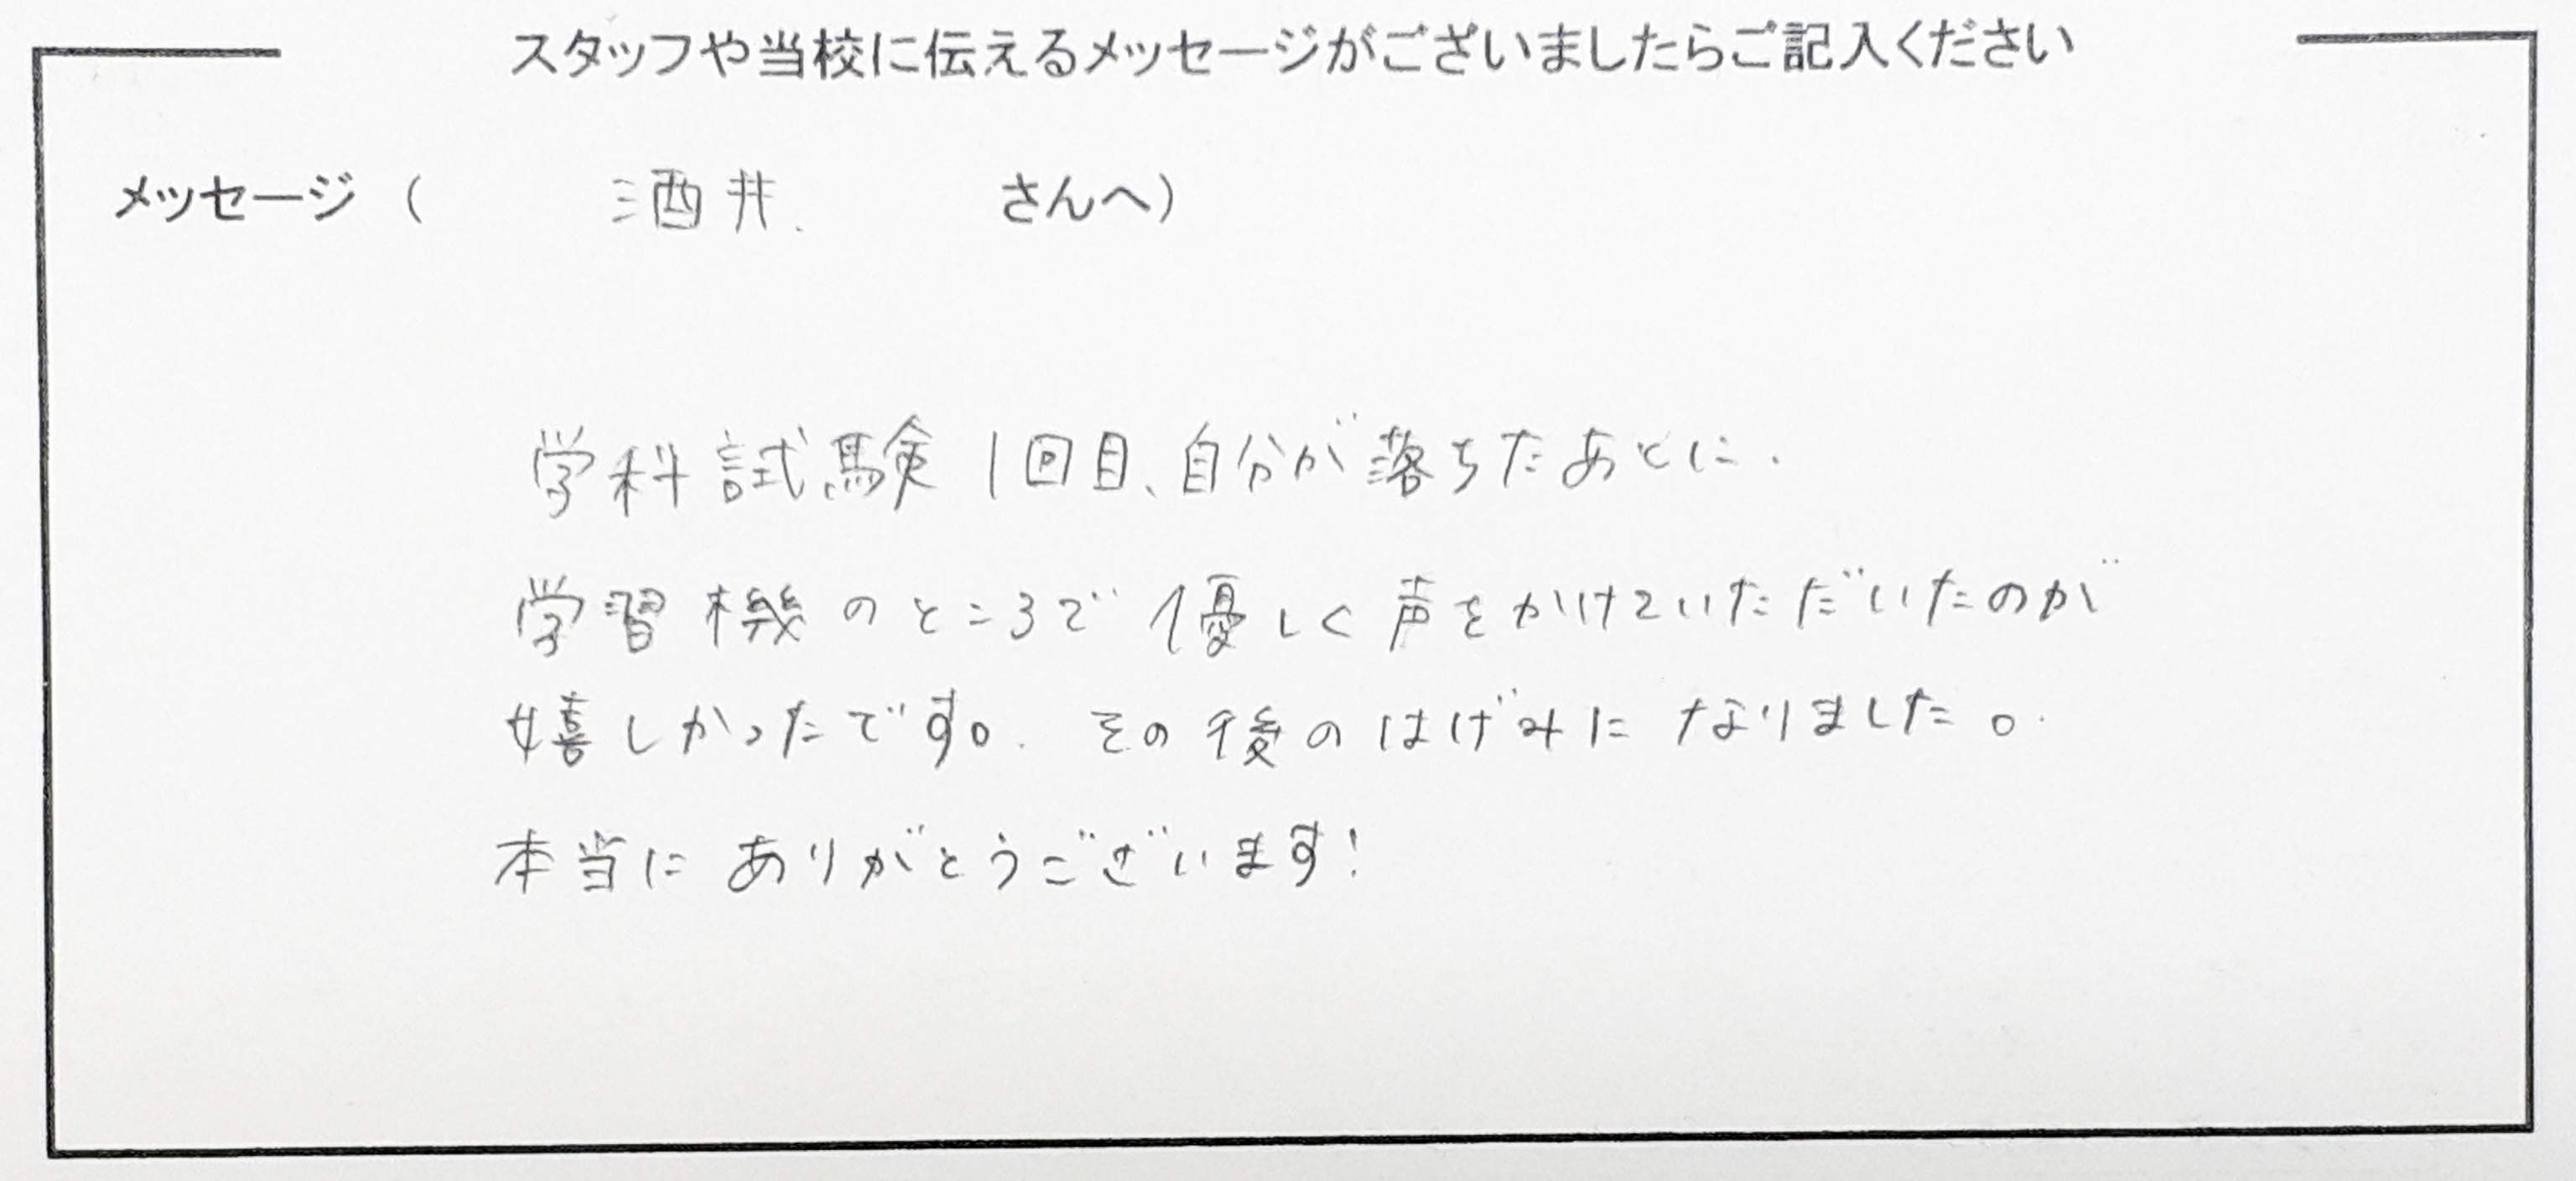 スタッフや当校に伝えるメッセージがございましたらご記入ください
メッセージ（ 酒井 さんへ）
学科試験1回目、自分が落ちたあとに、
学習機のところで優しく声をかけていただいたのが
嬉しかったです。その後のはげみになりました。
本当にありがとうございます！